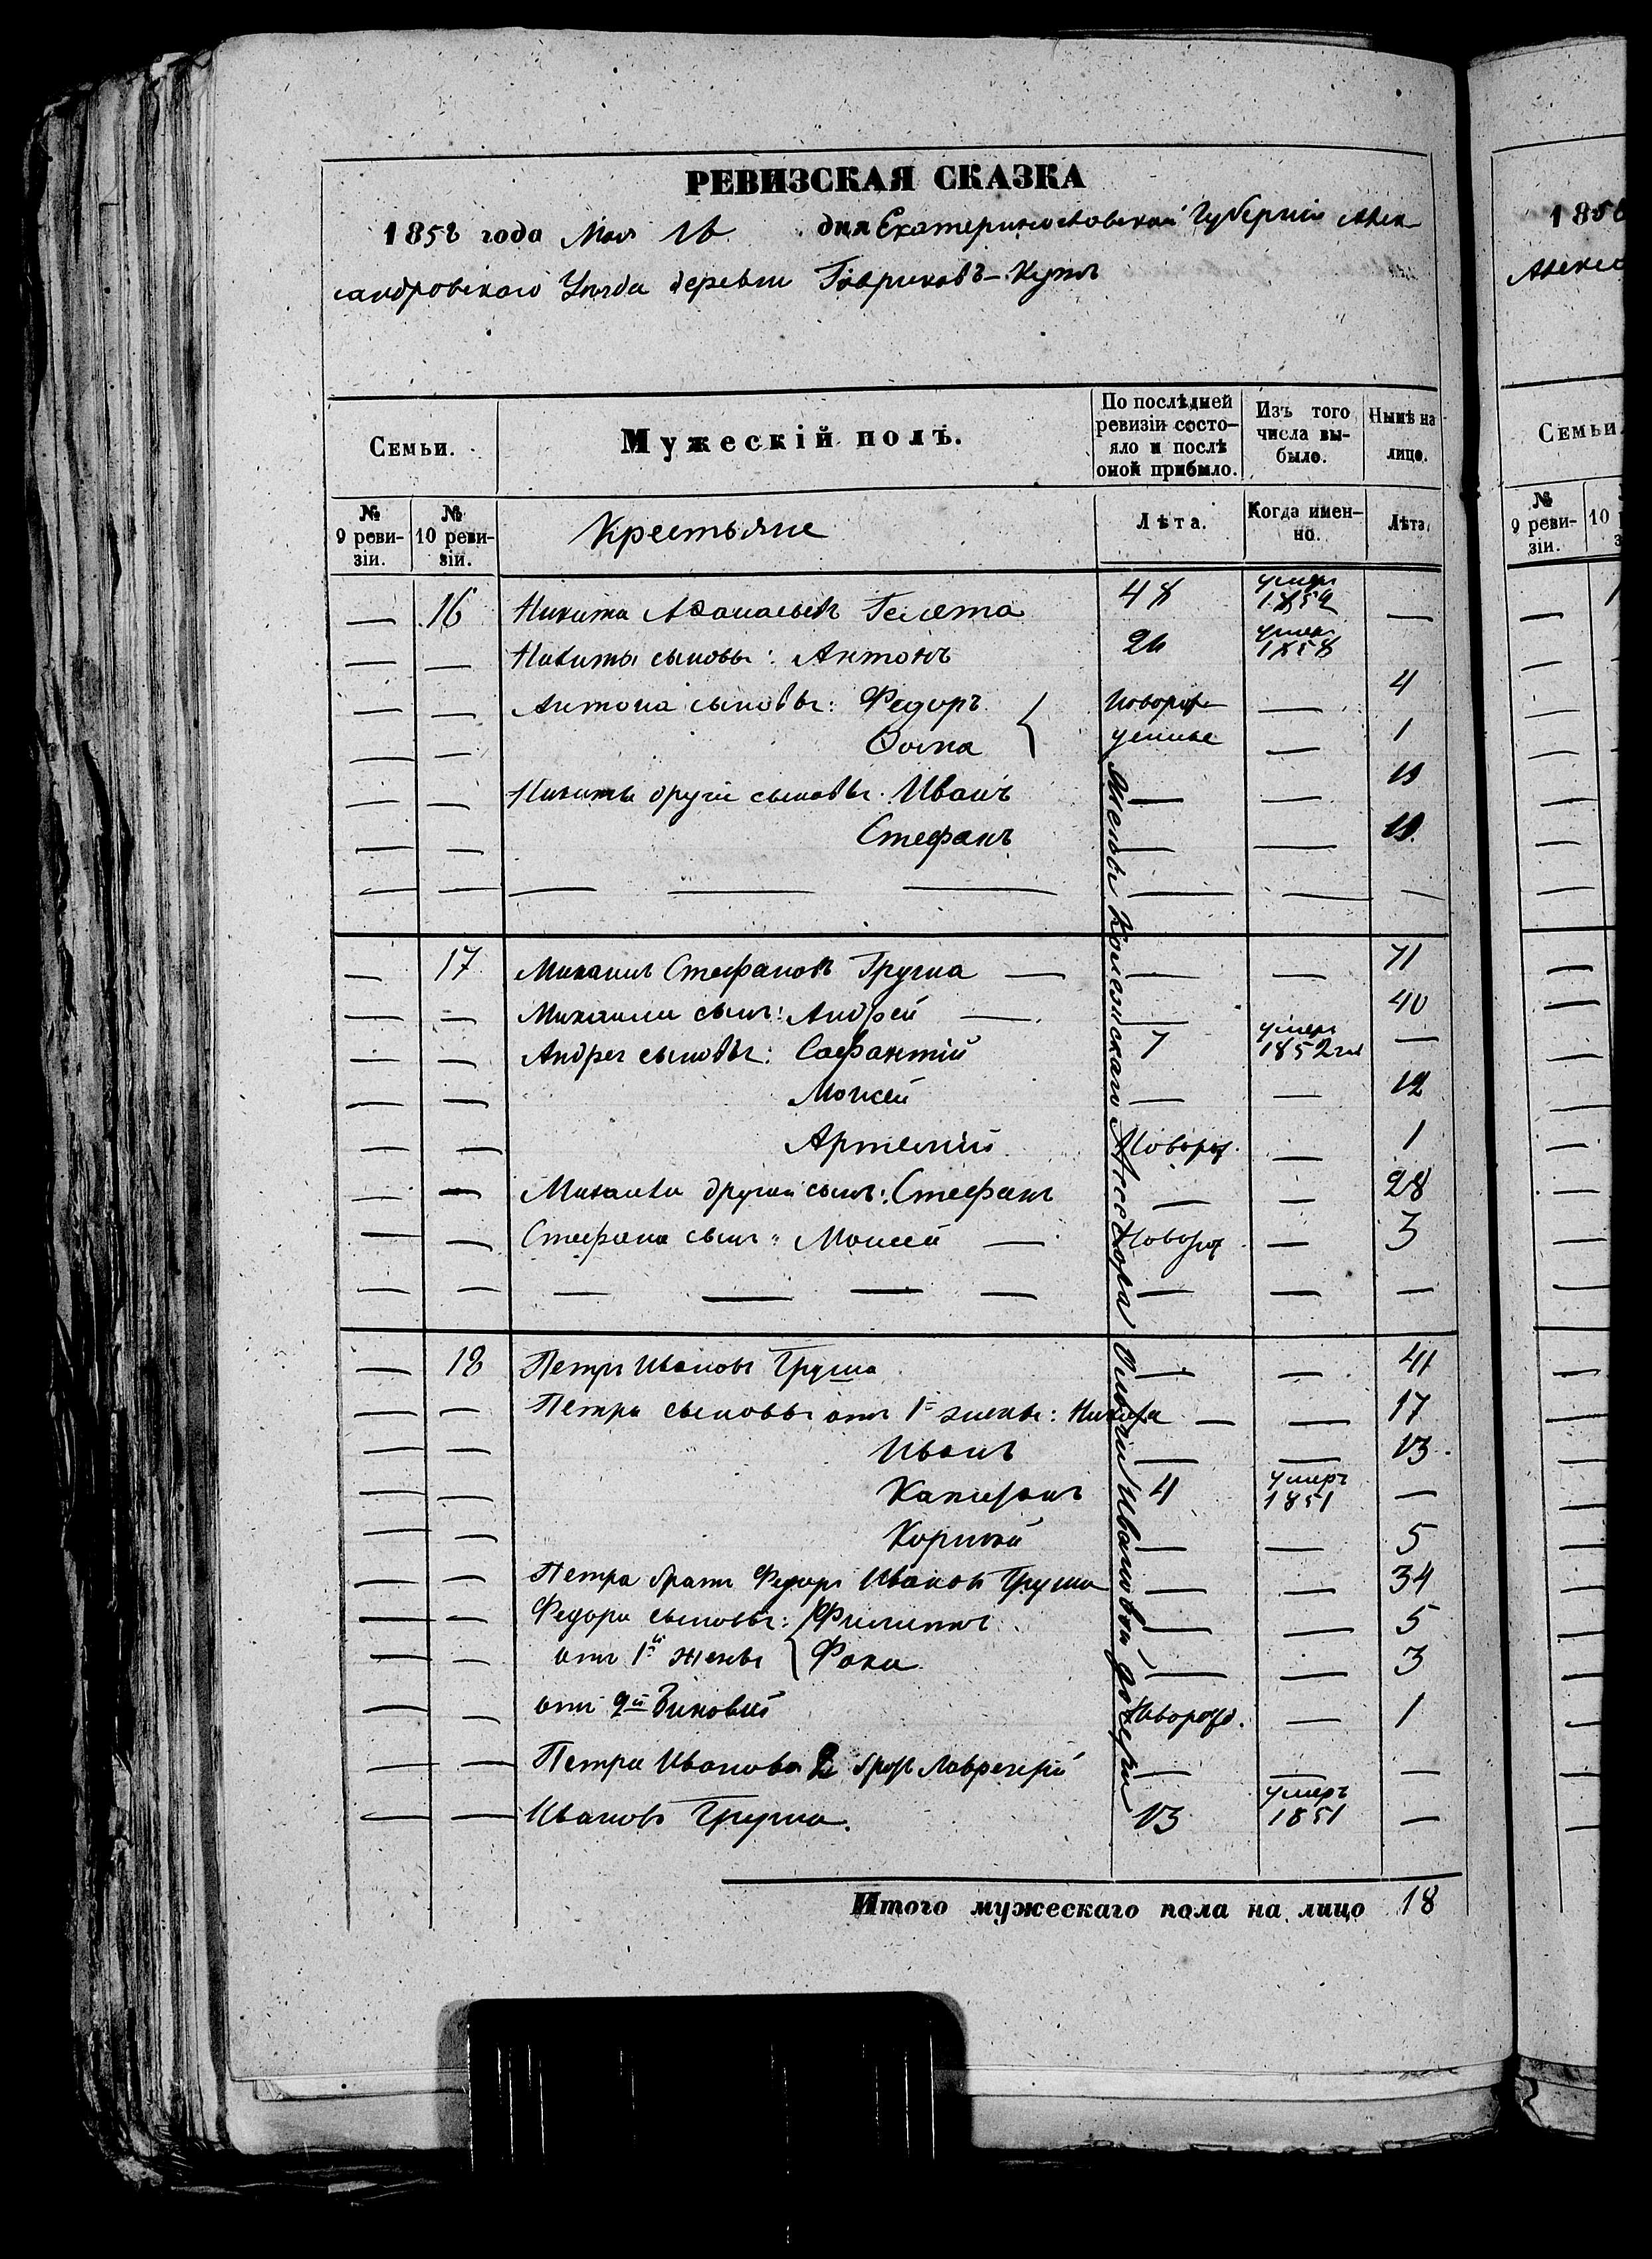 РЕВИЗСКАЯ СКАЗКА
1858 года Мая 16 дня Екатеринославской Губерніи Алек-
сандровскаго Уезда деревни Гавриковъ-Кутъ
Семьи.
Мужескій полъ.
По послѣдней ревизіи состо-
яло и послѣ оной прибыло.
Изъ того числа вы-
было.
Нынѣ на лицо.
№ 9 реви-
зіи.
№ 10 реви-
зіи.
Крестьяне
Лѣта.
Когда имен-
но.
Лѣта.
— 16 Никита Афанасьевъ 48 умеръ —
— — Никиты сыновья: Антонъ 26 умеръ 1858
— — Антона сыновья: Федоръ { Новорож- — 4
— — Фома денные — 1
— — Никиты другіе сыновья: Иванъ — —
— — Стефанъ — —
— — — — — — — —
— 17 Михаилъ Стефановъ Груша — — — 71
— — Михаила сынъ: Андрей — — 40
— — Андрея сыновья: 7 умеръ 1852 —
— — Моисей — — 12
— — Артемій Новорож. — 1
— — Михаила другой сынъ: Стефанъ — — 28
— — Стефана сынъ: Моисей — Новорож. — 3
— — — — — — — — —
— 18 Петръ Ивановъ Груша — — 41
— — Петра сыновья отъ 1й жены: — — 17
— — Иванъ — — 13
— — 4 умеръ 1851 —
— — Корній — — 5
— — Петра братъ Федоръ Ивановъ Груша — — 34
— — Федора сыновья: { Филиппъ — — 5
— — отъ 1й жены Фока — — 3
— — отъ 2й Зиновій Новорожд. — 1
— — Петра Иванова 2 братъ Лаврентій — — —
— — Ивановъ Груша. 13 умеръ 1851 —
Жены Колежскаго Ассесора Ивановой дочери
Итого мужескаго пола на лицо 18
1858
Алекс
Семьи.
№ 9 реви-
зіи.
10